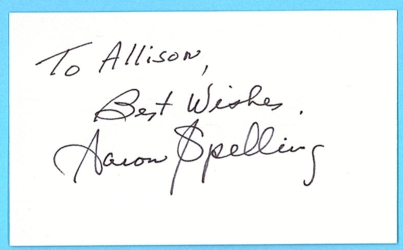 To Allison,
Best Wishes.
Aaron Spelling